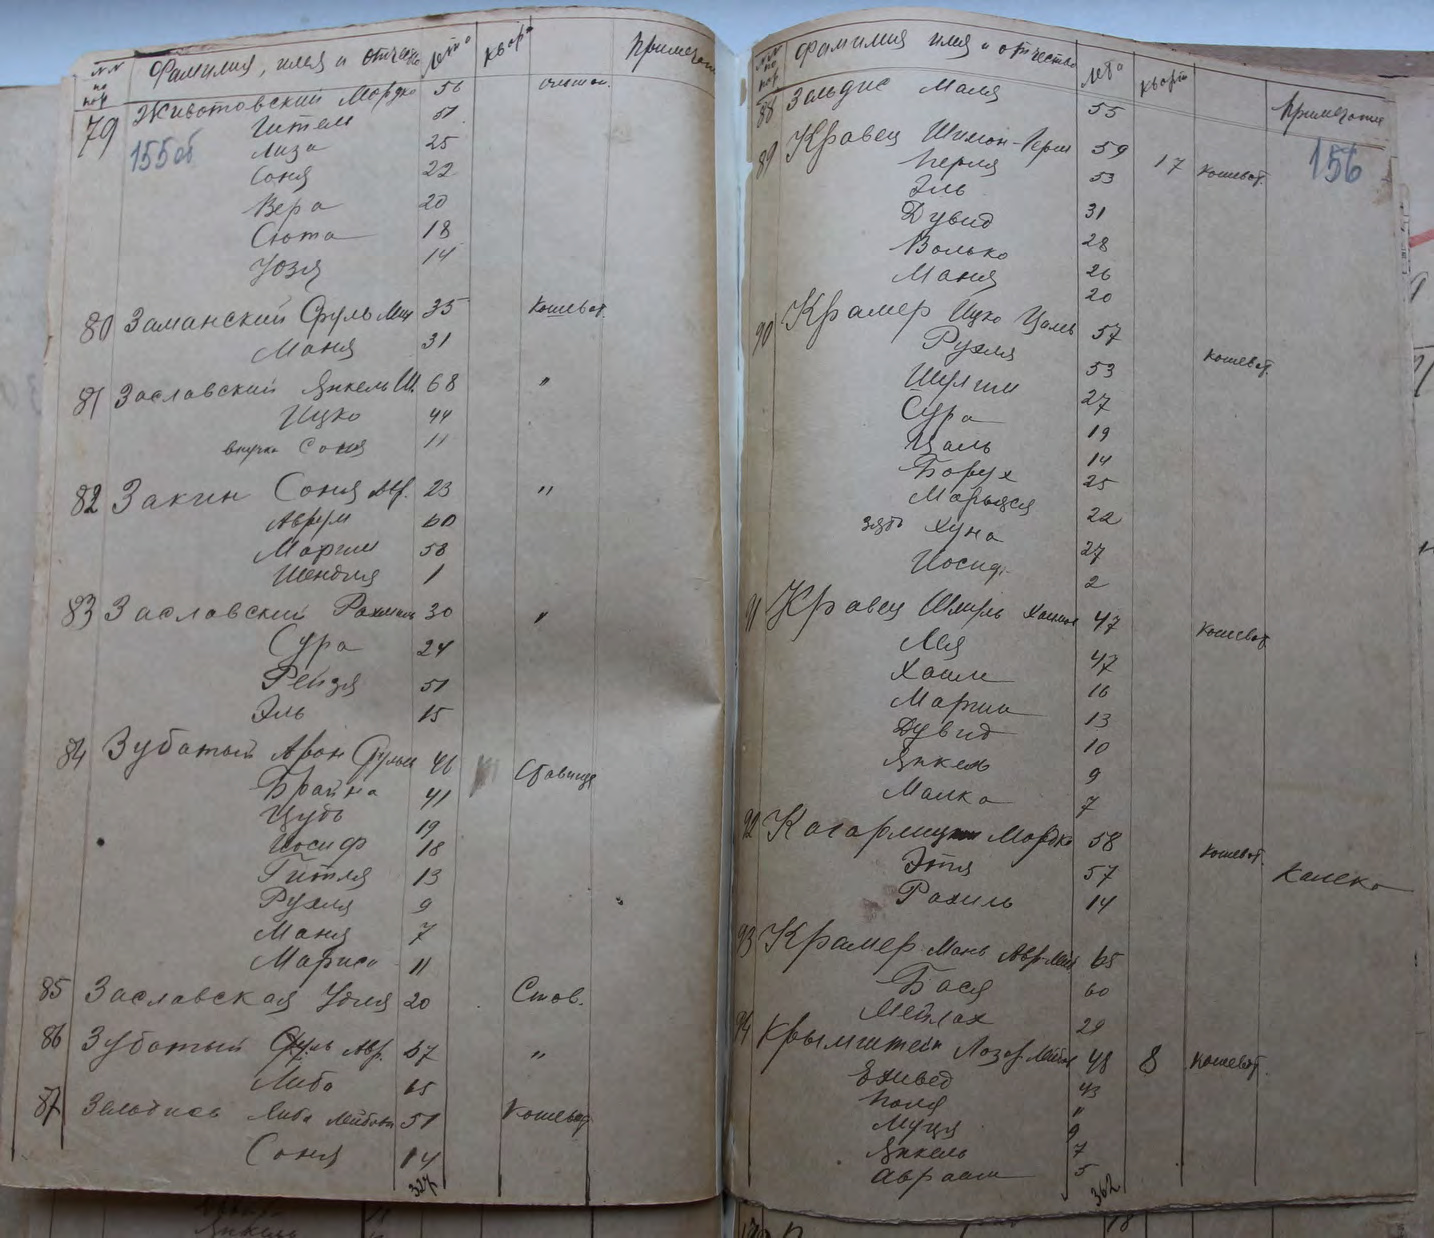 №№ по пор. Фамилия, имя и отчество Лета Кварт Примечан
79 Животовский Мордко 56
Гитель 51
155об Лиза 25
Соня 22
Вера 20
Сюта 18
Уозя 14
80 Заманский Сруль 35 Кошеват.
Маня 31
81 Заславский Янкель Ш. 68 "
Ицко 44
внучка Соня 11
82 Закин Соня Авр. 23 "
Аврум 60
Маріям 58
Шендля 1
83 Заславский Рахмиль 30 "
Сура 24
Рейзя 51
Эль 15
84 Зубатый Арон Срулев 46 Ставище
Брайна 41
Цудь 19
Иосиф 18
Гитля 13
Рухля 9
Маня 7
Мариса 11
85 Заславская Удля 20 Став.
86 Зубатый Сруль Авр. 67 "
Либа 65
87 Зельдись Либа Лейбовн 51 Кошеват
Соня 14
327
№№ по пор. Фамилия имя и отчество Лета Кварт Примечание
88 Зальдис Маля 55
89 Кравец Шимон-Герш 59 17 Кошеват. 156
Перля 53
Эль 31
Дувид 28
Волько 26
Маня 20
90 Крамер Ицко Цаль 57 Кошеват.
Рухля 53
Шулим 27
Сура 19
Цаль 14
Борух 25
Марьяся 22
зять Хуна 27
Иосиф 2
91 Кравец Шмуль Хаимов 47 Кошеват
Лея 47
Хаим 16
Маріям 13
Дувид 10
Янкель 9
Малка 7
92 Кагарлицкий Мордко 58 Кошеват. Калека
Этя 57
Рахиль 14
93 Крамер Мань Авр 65
Бася 60
Мейлах 29
94 Крымштейн Лазар Лейбов 48 8 Кошеват.
Ехивед 43
Поля "
Муця 9
Янкель 7
Авраам 5
362